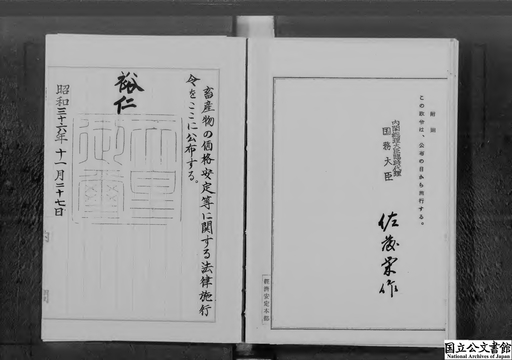 附則
この政令は、公布の日から施行する。
内閣総理大臣臨時代理
国務大臣
佐藤栄作
経済安定本部
畜産物の価格安定等に関する法律施行
令をここに公布する。
裕仁
天皇
御璽
昭和三十六年十一月二十七日
国立公文書館
National Archives of Japan